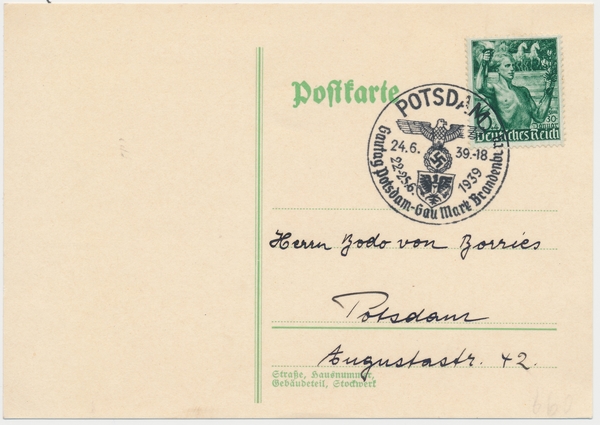 Postkarte
POTSDAM
24.6. 39.-18
22-25.6. 1939
Gautag Potsdam-Gau Mark Brandenburg
Deutsches Reich
Herrn Bodo von Borries
Potsdam
Augustastr. 42.
Straße, Hausnummer,
Gebäudeteil, Stockwerk